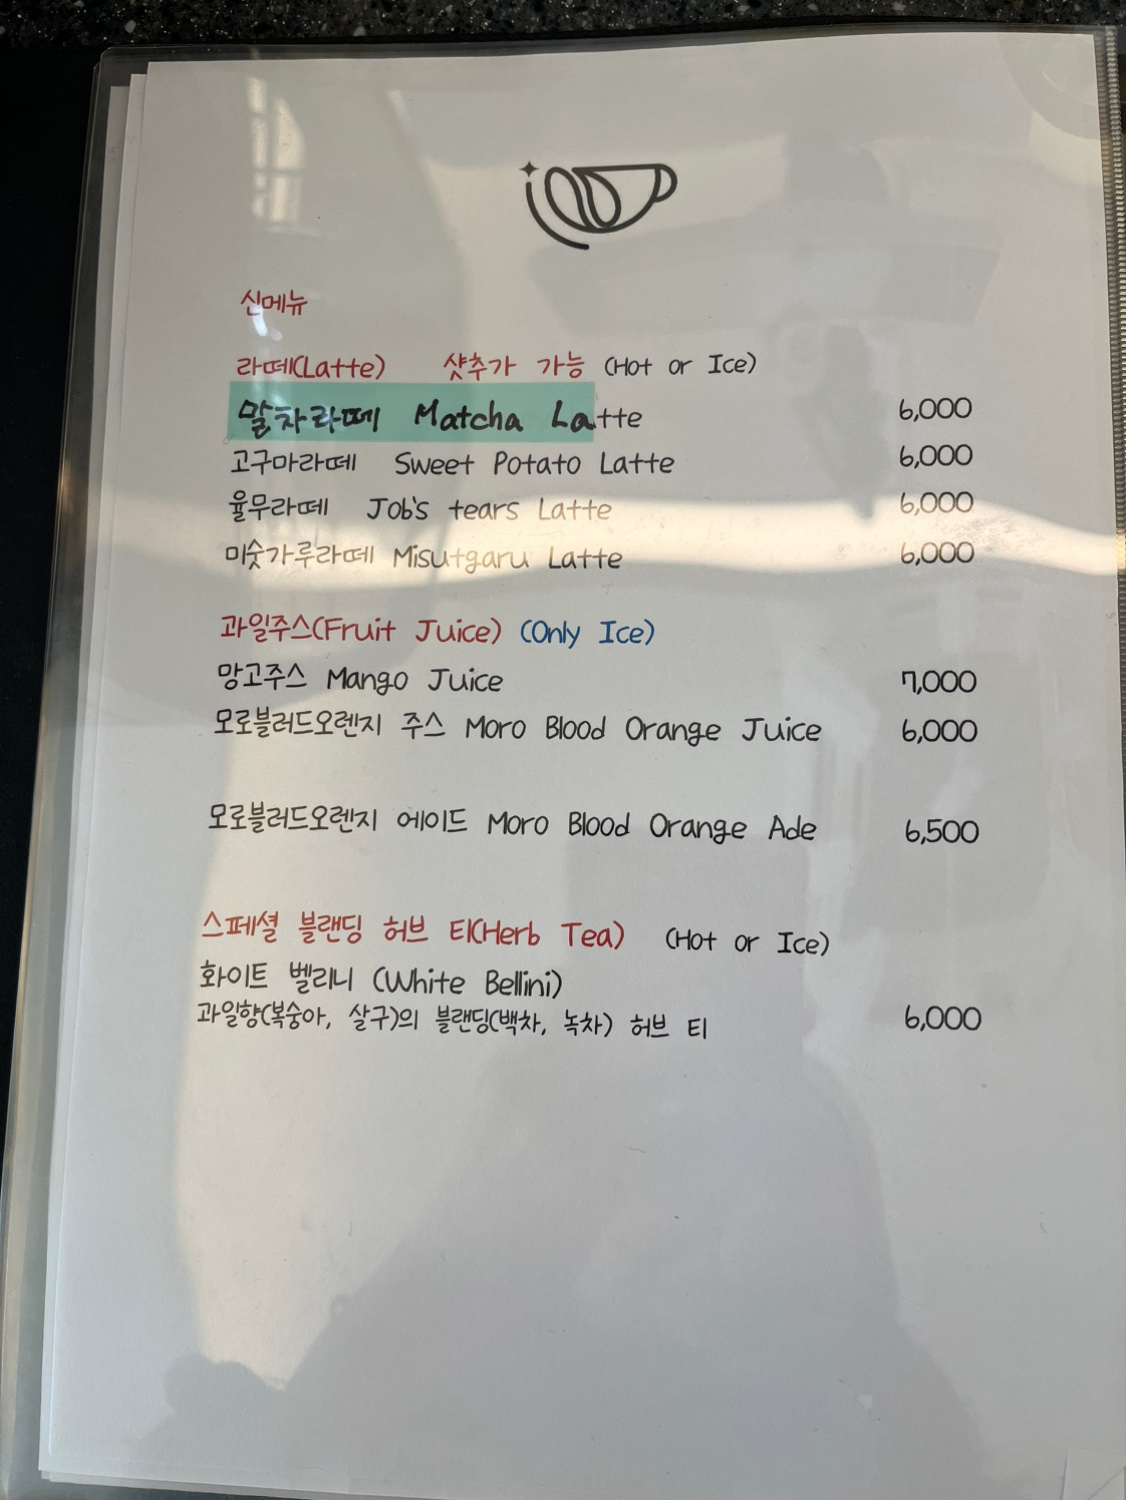 신메뉴
라떼(Latte) 샷추가 가능 (Hot or Ice)
말차라떼 Matcha Latte 6,000
고구마라떼 Sweet Potato Latte 6,000
율무라떼 Job's tears Latte 6,000
미숫가루라떼 Misutgaru Latte 6,000
과일주스(Fruit Juice) (Only Ice)
망고주스 Mango Juice 7,000
모로블러드오렌지 주스 Moro Blood Orange Juice 6,000
모로블러드오렌지 에이드 Moro Blood Orange Ade 6,500
스페셜 블랜딩 허브 티(Herb Tea) (Hot or Ice)
화이트 벨리니 (White Bellini)
과일향(복숭아, 살구)의 블랜딩(백차, 녹차) 허브 티 6,000